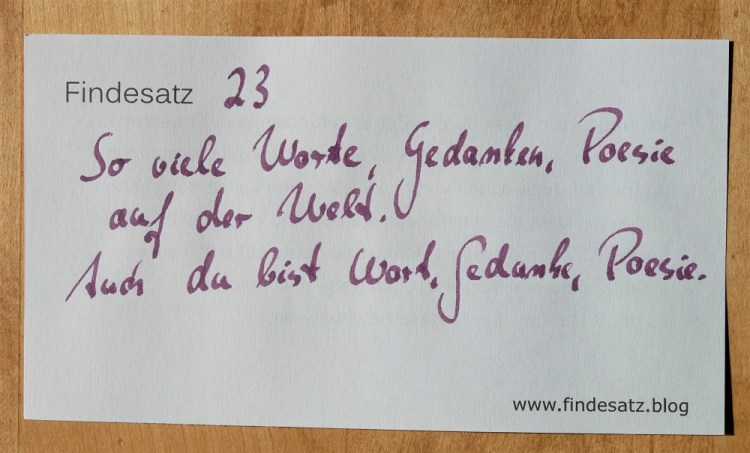 Findesatz 23
So viele Worte, Gedanken, Poesie
auf der Welt.
Auch du bist Wort, Gedanke, Poesie.
www.findesatz.blog